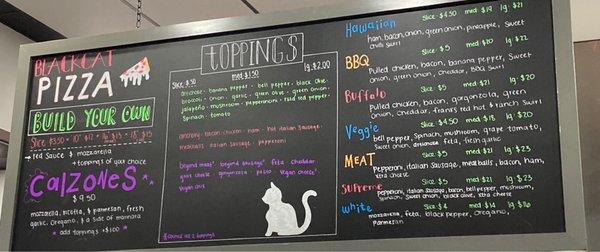 BLACKCAT
PIZZA
BUILD YOUR OWN
Slice $3.50 • 10" $12 • 16" $15 • 18" $15
→ red Sauce & mozzarella
+ toppings of your choice
CALZONES
$9.50
mozzarella, ricotta, & parmesan, fresh
garlic, Oregano, & a side of marinara
add toppings +$1.00
TOPPINGS
Slice $.50
med $1.50
lg. $2.00
banana pepper • bell pepper • black olive
broccoli • onion • garlic • green olive • green onion
jalapeño • mushroom • pepperoncini • red pepper
Spinach • tomato
anchovy • bacon • chicken • ham • hot italian sausage
meatballs • italian sausage • pepperoni
beyond meat* beyond sausage* feta cheddar
goat cheese gorgonzola vegan cheese*
*counts as 2 toppings
Hawaiian
Slice $4.50 med $19 lg. $21
ham, bacon, onion, green onion, pineapple, Sweet
chili swirl
BBQ
Slice $5 med $20 lg $22
Pulled chicken, bacon, banana pepper, Sweet
onion, green onion, cheddar, BBQ Swirl
Buffalo
Slice $5 med $21 $20
Pulled chicken, bacon, gorgonzola, green
onion, cheddar, frank's red hot & ranch Swirl
Veggie
Slice $4.50 med $18 $20
bell pepper, Spinach, mushroom, grape tomato,
Sweet onion, feta, fresh garlic
MEAT
Slice $5 med $21 $25
Pepperoni, italian Sausage, meatballs, bacon, ham,
xtra cheese
Supreme
Slice $5 med $21 $25
pepperoni, italian Sausage, bacon, bell pepper, mushroom,
Spinach, Sweet onion, black olive, xtra cheese
White
Slice $4 med $14 lg $16
mozzarella, feta, black pepper, Oregano,
Parmesan